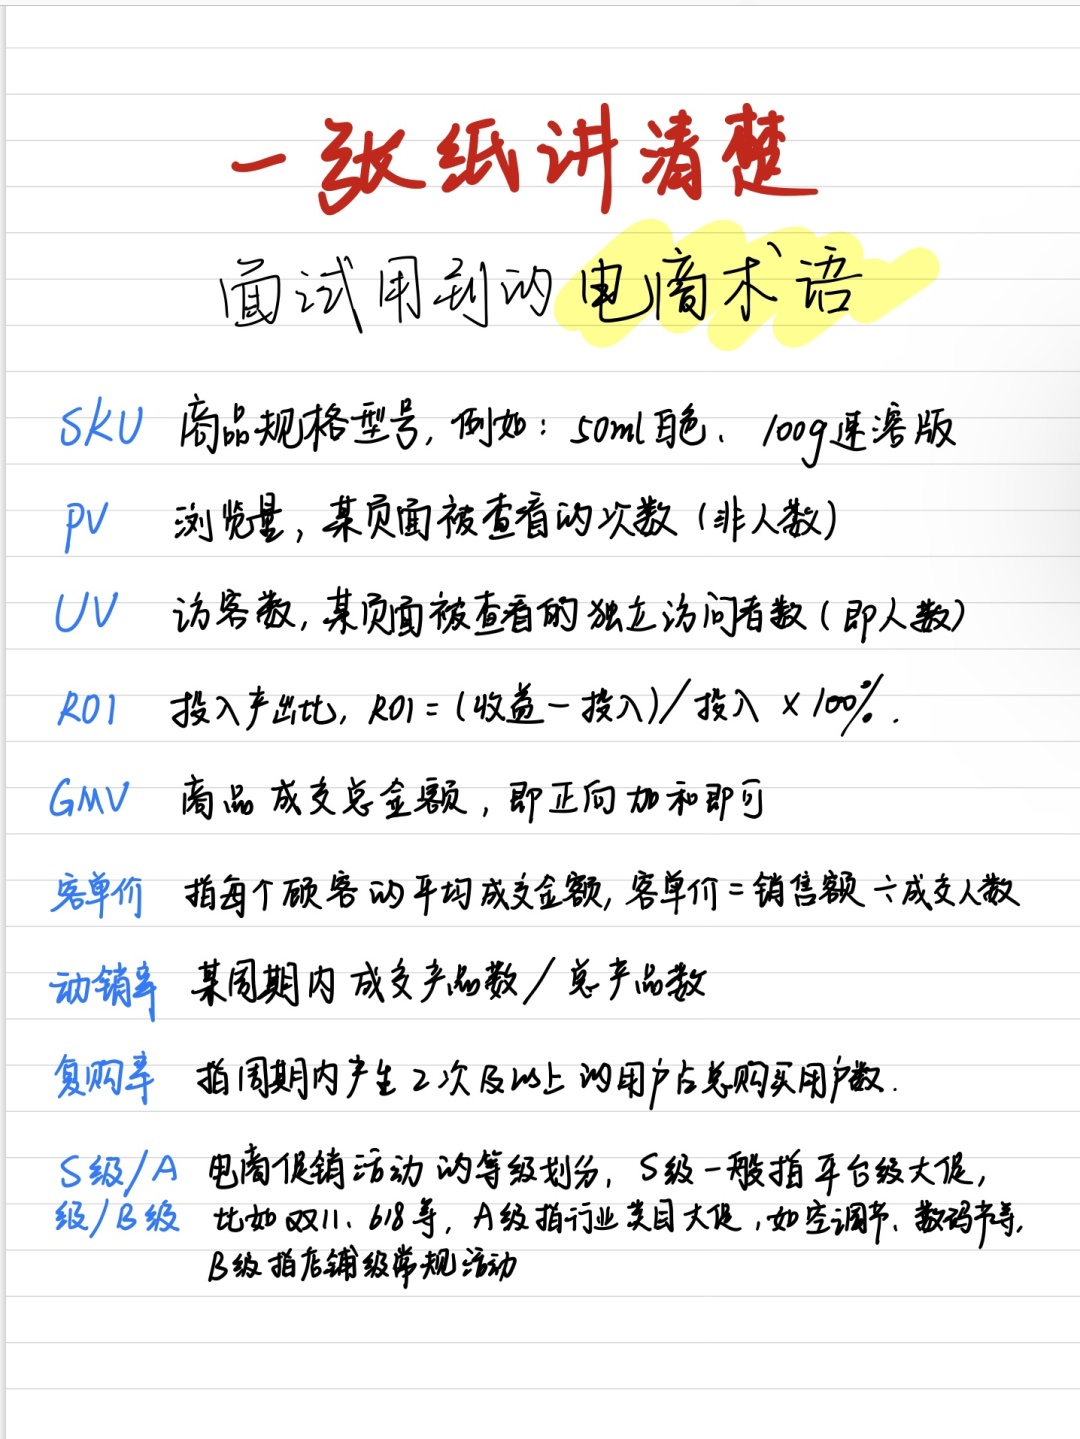 一张纸讲清楚
面试用到的电商术语
SKU 商品规格型号, 例如: 50ml白色、100g速溶版
PV 浏览量, 某页面被查看的次数 (非人数)
UV 访客数, 某页面被查看的独立访问者数 (即人数)
ROI 投入产出比, ROI = (收益 - 投入) / 投入 × 100%.
GMV 商品成交总金额, 即正向加和即可
客单价 指每个顾客的平均成交金额, 客单价 = 销售额 ÷ 成交人数
动销率 某周期内成交产品数 / 总产品数
复购率 指周期内产生2次及以上的用户占总购买用户数.
S级/A 电商促销活动的等级划分, S级一般指平台级大促,
级/B级 比如双11、618等, A级指行业类目大促, 如空调节、数码节等,
B级指店铺级常规活动